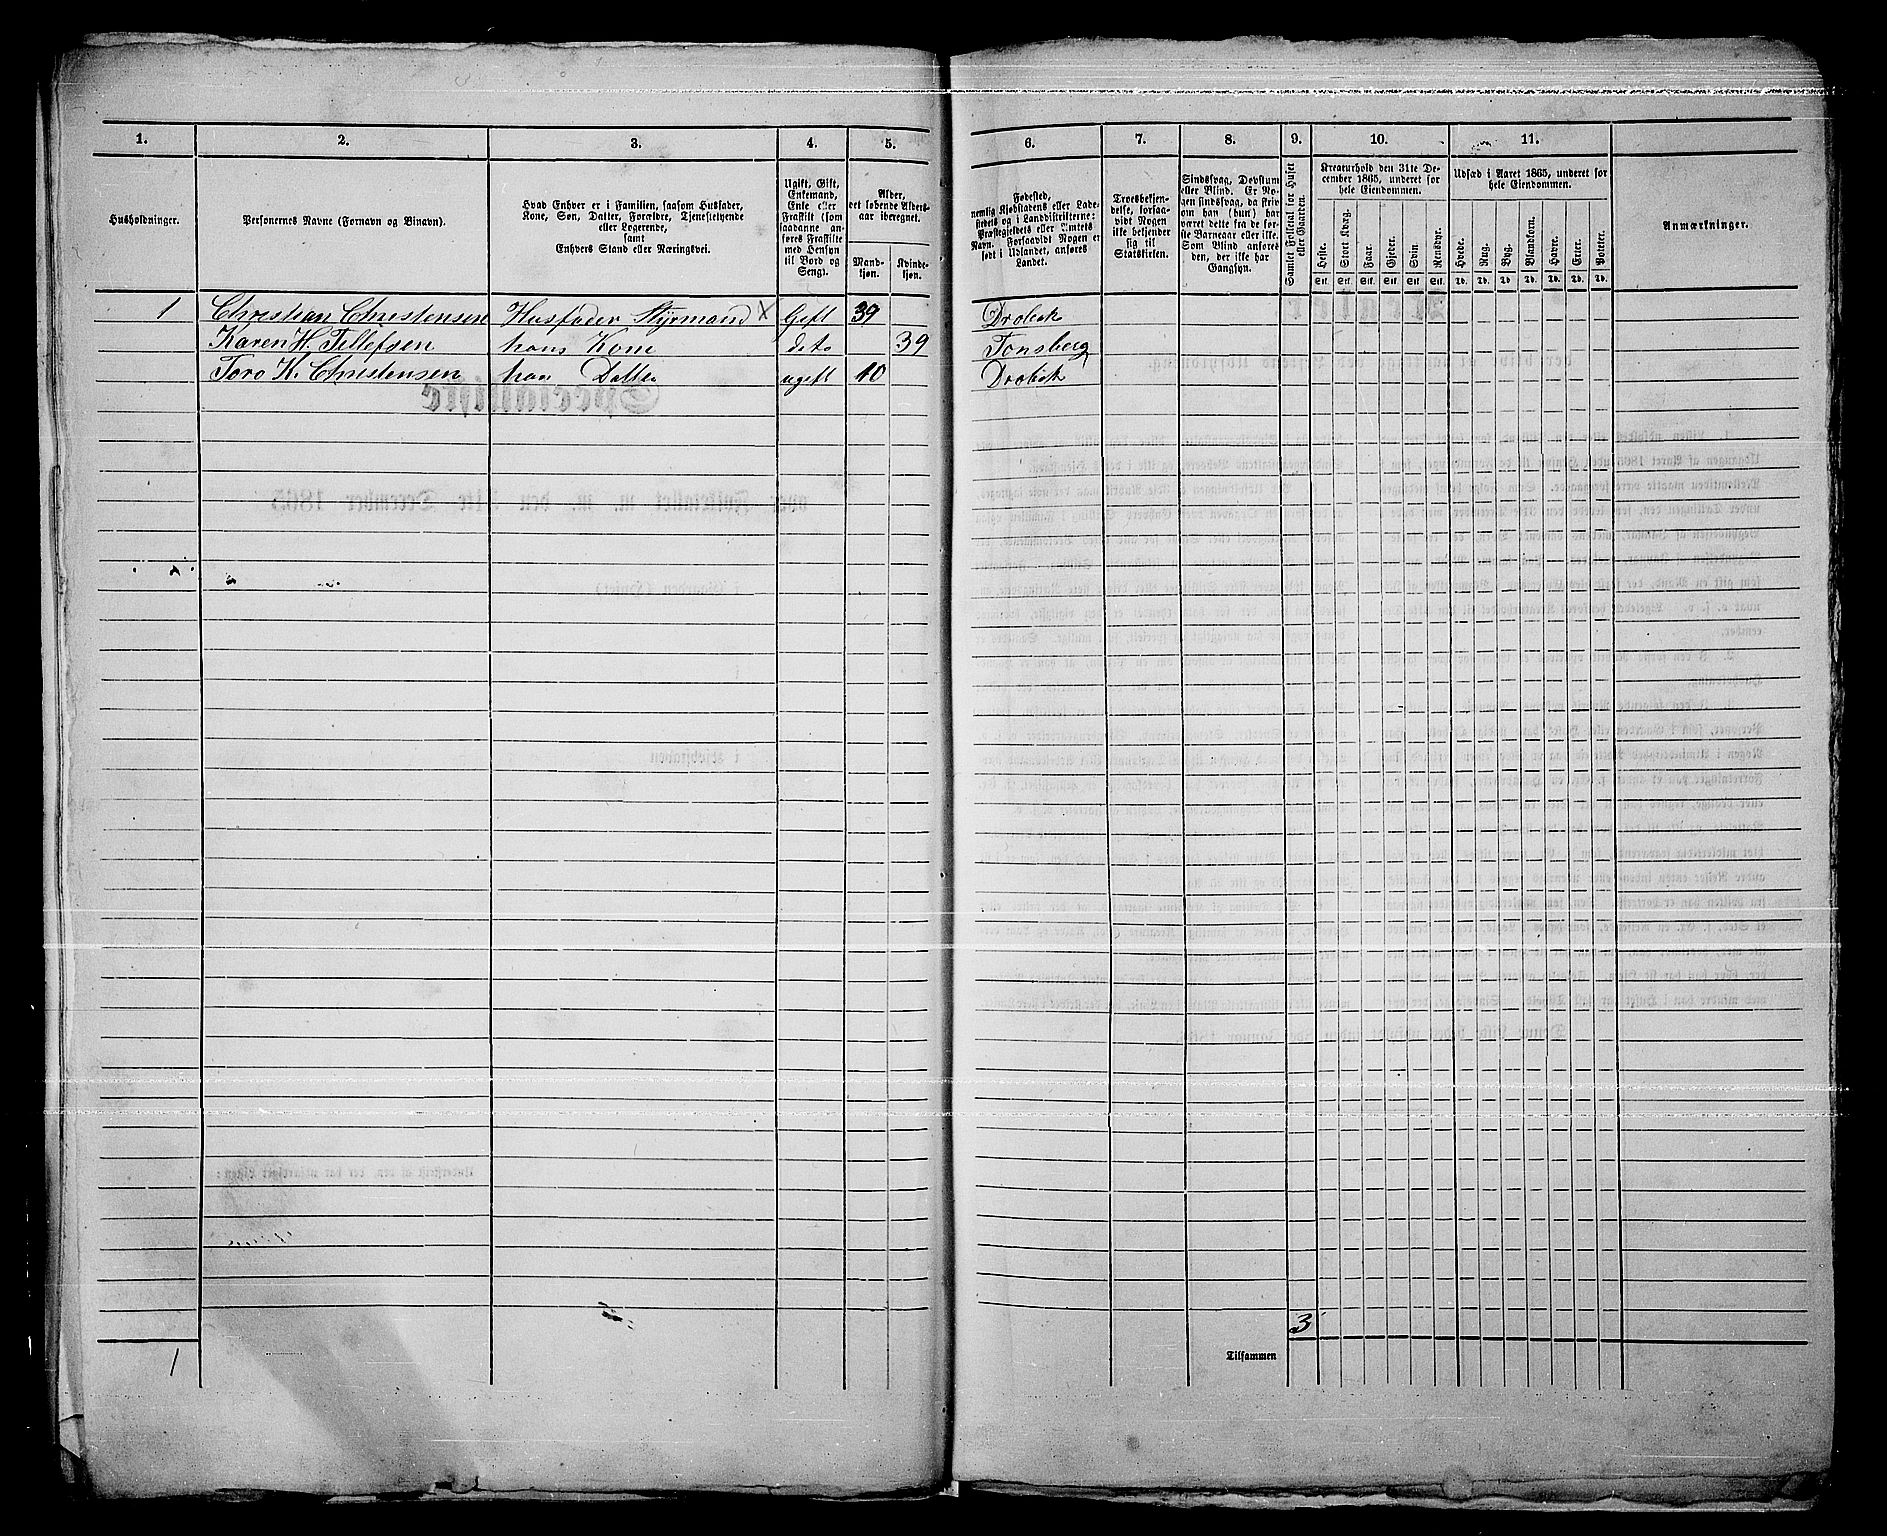 1. 2. 3. 4. 5. 6. 7. 8. 9. 10. 11.
Husholdninger.
Personernes Navne (Fornavn og Binavn).
Hvad Enhver er i Familien, saasom Husfader,
Kone, Søn, Datter, Forældre, Tjenestetyende
eller Logerende,
samt
Enhvers Stand eller Næringsvei.
Ugift, Gift,
Enkemand,
Enke eller
Fraskilt (som
saadanne an-
føres Fraskilte
med Hensyn
til Bord og
Seng).
Alder,
det løbende Alders-
aar iberegnet.
Mand-
kjøn.
Kvinde-
kjøn.
Fødested,
nemlig Kjøbstadens eller Lade-
stedets og i Landdistrikterne:
Præstegjeldets eller Amtets
Navn. Forsaavidt Nogen er
født i Udlandet, anføres
Landet.
Troesbekjen-
delse, forsaa-
vidt Nogen
ikke bekjender
sig til
Statskirken.
Sindssvag, Døvstum
eller Blind. Er No-
gen sindssvag, da skri-
ves om han (hun) har
været dette fra de før-
ste Barneaar eller ikke.
Som Blind anføres
den, der ikke har
Gangsyn.
Samlet Folketal for Huset
eller Gaarden.
Kreaturhold den 31te De-
cember 1865, underet for
hele Eiendommen.
Heste. Stort Kvæg. Faar. Gjeder. Svin. Rensdyr.
Stk. Stk. Stk. Stk. Stk. Stk.
Udsæd i Aaret 1865, underet for
hele Eiendommen.
Hvede. Rug. Byg. Blandkorn. Havre. Erter. Poteter.
Td. Td. Td. Td. Td. Td. Td.
Anmærkninger.
1 Christian Christensen Husfader Styrmand X Gift 39 Drobak
Karen H. Tellefsen hans Kone dito 39 Tonsberg
Toro K. Christensen han Datter ugift 10 Drobak
3
Tilsammen
1